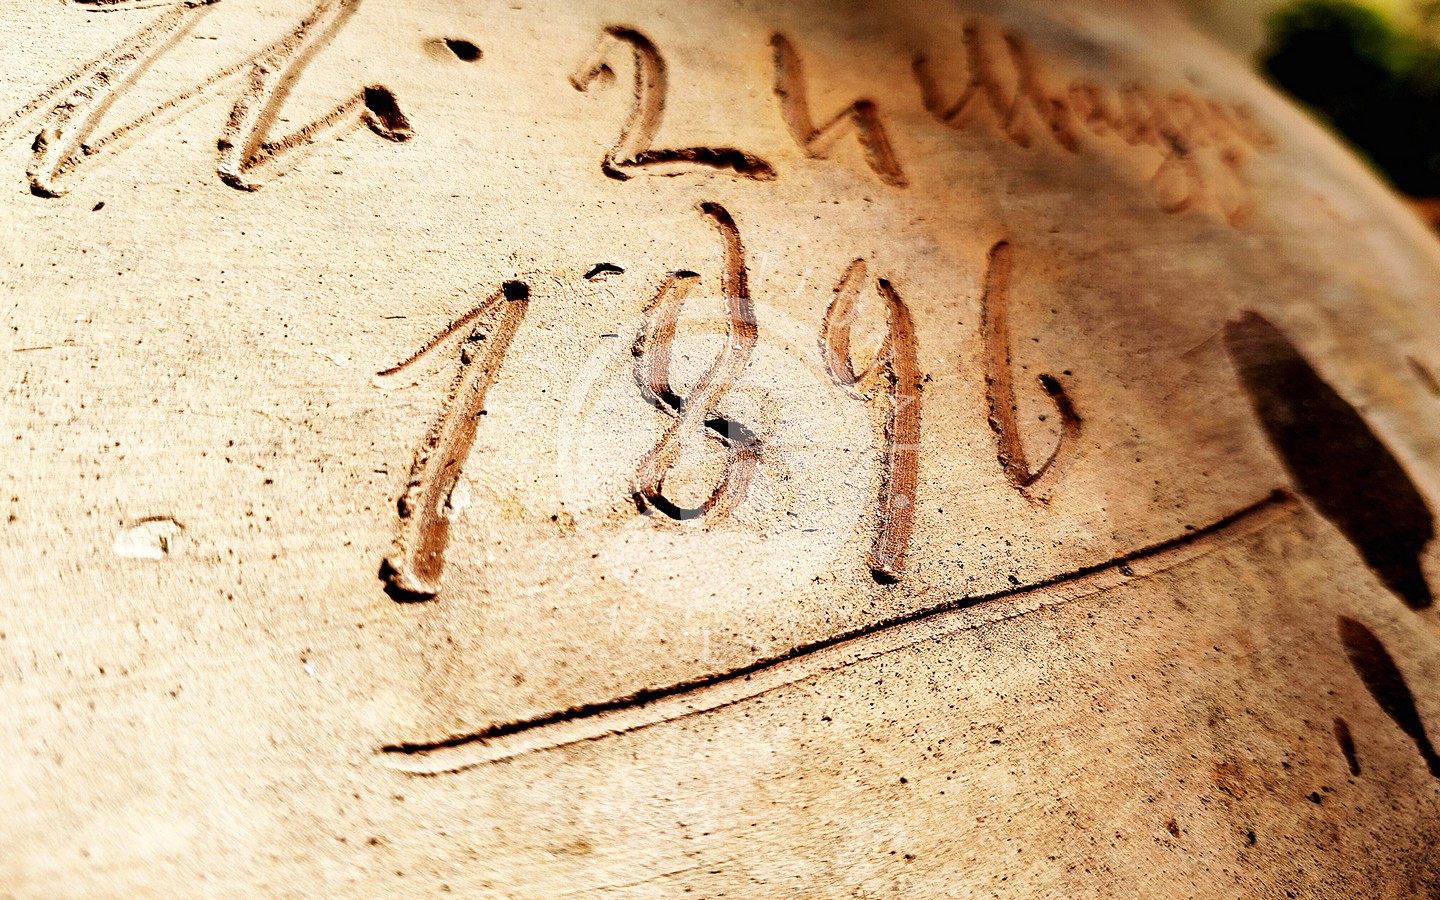 li. 24 Maggio
1896